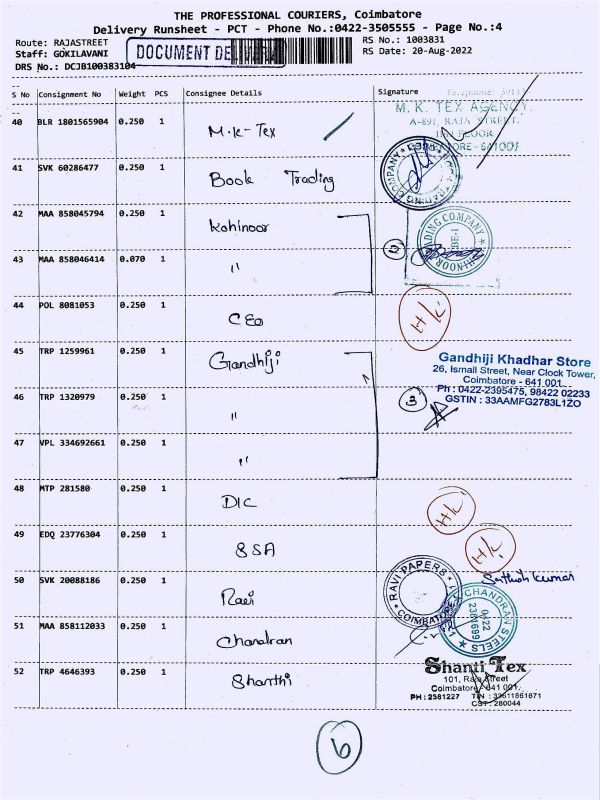 THE PROFESSIONAL COURIERS, Coimbatore
Delivery Runsheet - PCT - Phone No.:0422-3505555 - Page No.:4
Route: RAJASTREET
RS No.: 1003831
Staff: GOKILAVANI
RS Date: 20-Aug-2022
DOCUMENT
DRS No.: DCJB100383104
S No Consignment No Weight PCS Consignee Details Signature
M. K. TEX AGENCY
A-891, RAJA STREET,
FLOOR
40 BLR 1801565904 0.250 1 M.K-Tex
41 SVK 60286477 0.250 1 Book Trading
TRADING COMPANY
42 MAA 858045794 0.250 1 Kohinoor
KOHINOOR TRADING COMPANY
CBE-1
43 MAA 858046414 0.070 1 "
44 POL 8081053 0.250 1 CEO
H/K
45 TRP 1259961 0.250 1 Gandhiji
Gandhiji Khadhar Store
26, Ismail Street, Near Clock Tower,
Coimbatore - 641 001.
Ph : 0422-2395475, 98422 02233
GSTIN : 33AAMFG2783L1ZO
46 TRP 1320979 0.250 1 "
3
47 VPL 334692661 0.250 1 "
48 MTP 281580 0.250 1 DIC
H/K
49 EDQ 23776304 0.250 1 SSA
H/K
50 SVK 20088186 0.250 1 Ravi
RAVI PAPERS
COIMBATORE
Sathish Kumar
51 MAA 858112033 0.250 1 Chandran
CHANDRAN STEELS
0422
2381699
52 TRP 4646393 0.250 1 Shanthi
Shanti Tex
101, Raja Street
Coimbatore - 641 001.
PH : 2381227 TIN : 33611861671
CST : 280044
6